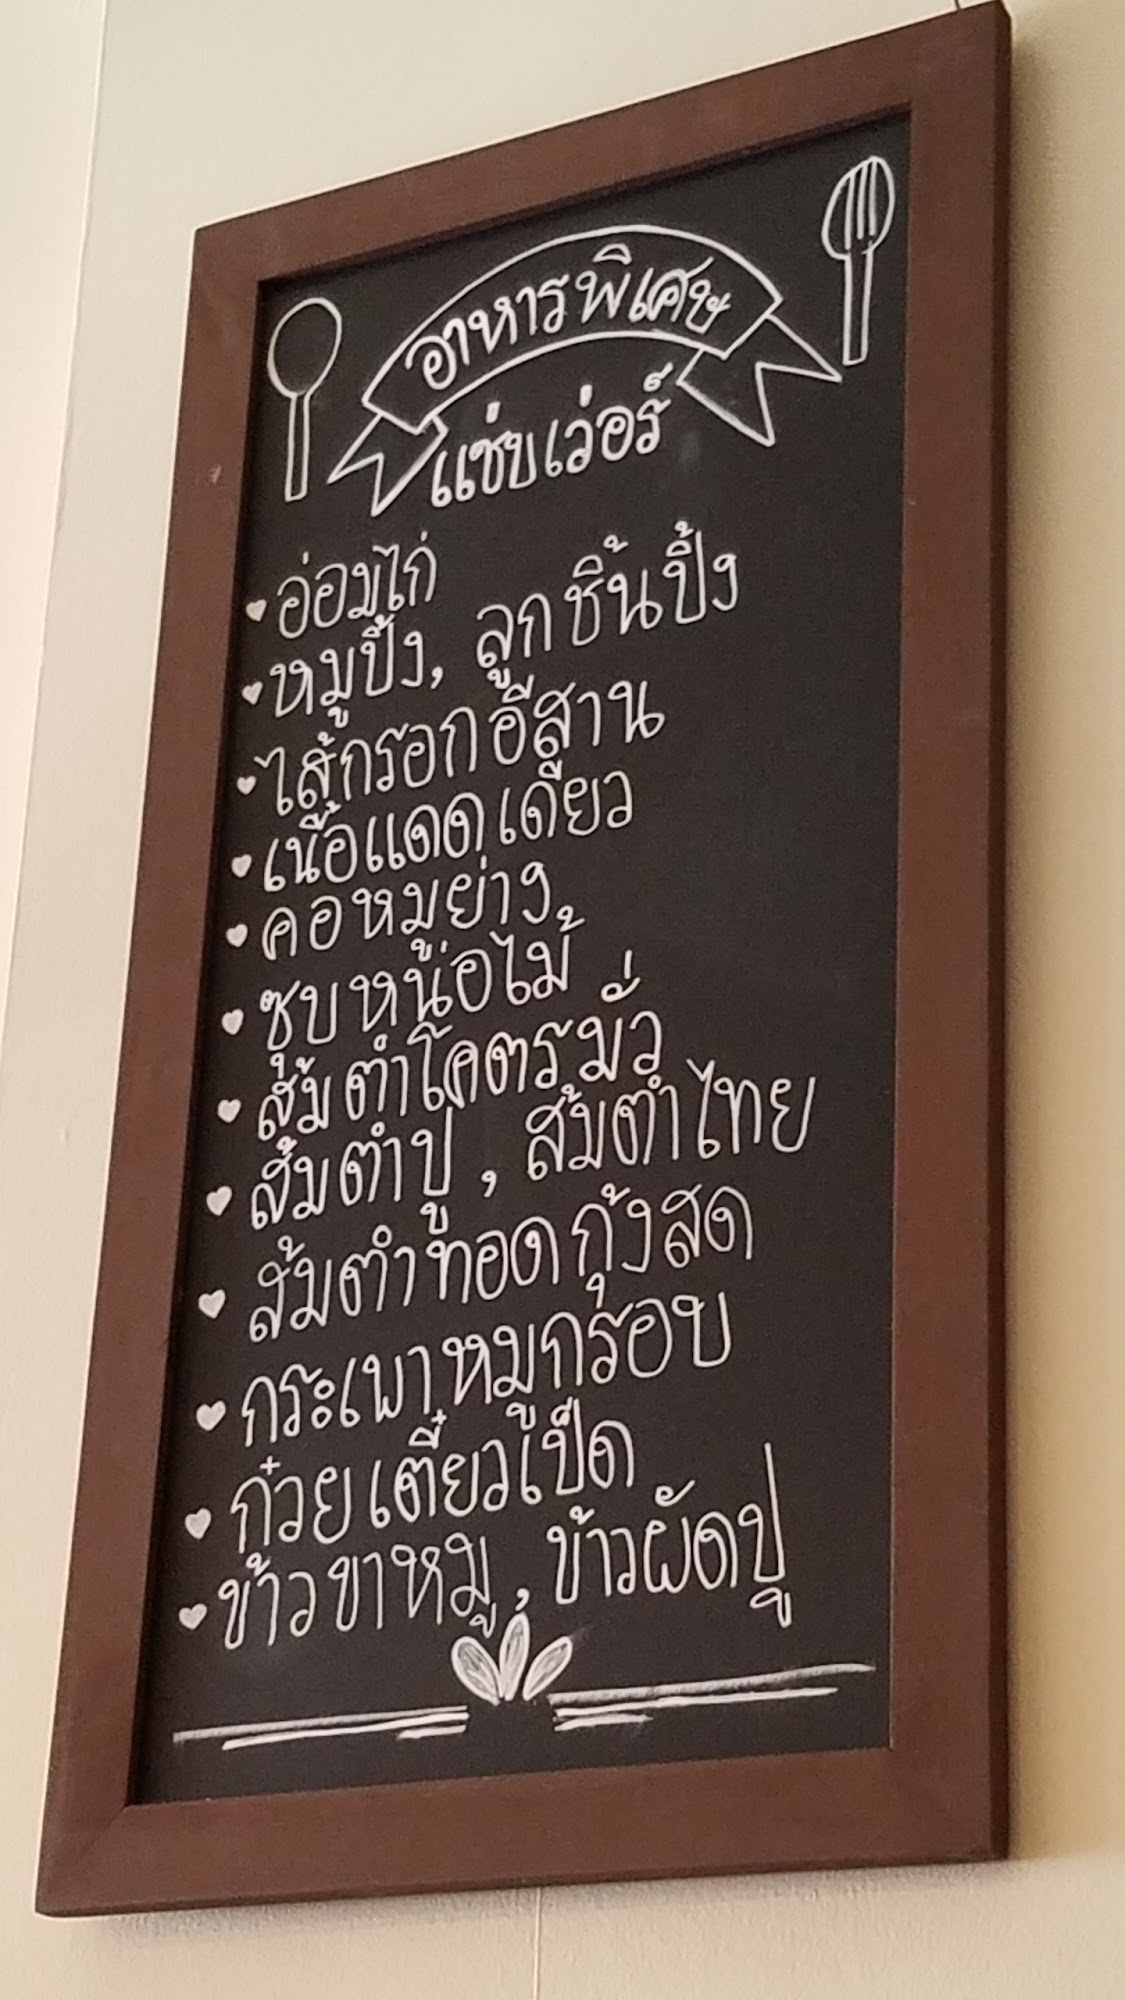 อาหารพิเศษ
แซ่บเว่อร์
อ่อมไก่
หมูปิ้ง, ลูกชิ้นปิ้ง
ไส้กรอกอีสาน
เนื้อแดดเดียว
คอหมูย่าง
ซุบหน่อไม้
ส้มตำโคตรมั่ว
ส้มตำปู, ส้มตำไทย
ส้มตำทอดกุ้งสด
กระเพาหมูกรอบ
ก๋วยเตี๋ยวเป็ด
ข้าวขาหมู, ข้าวผัดปู